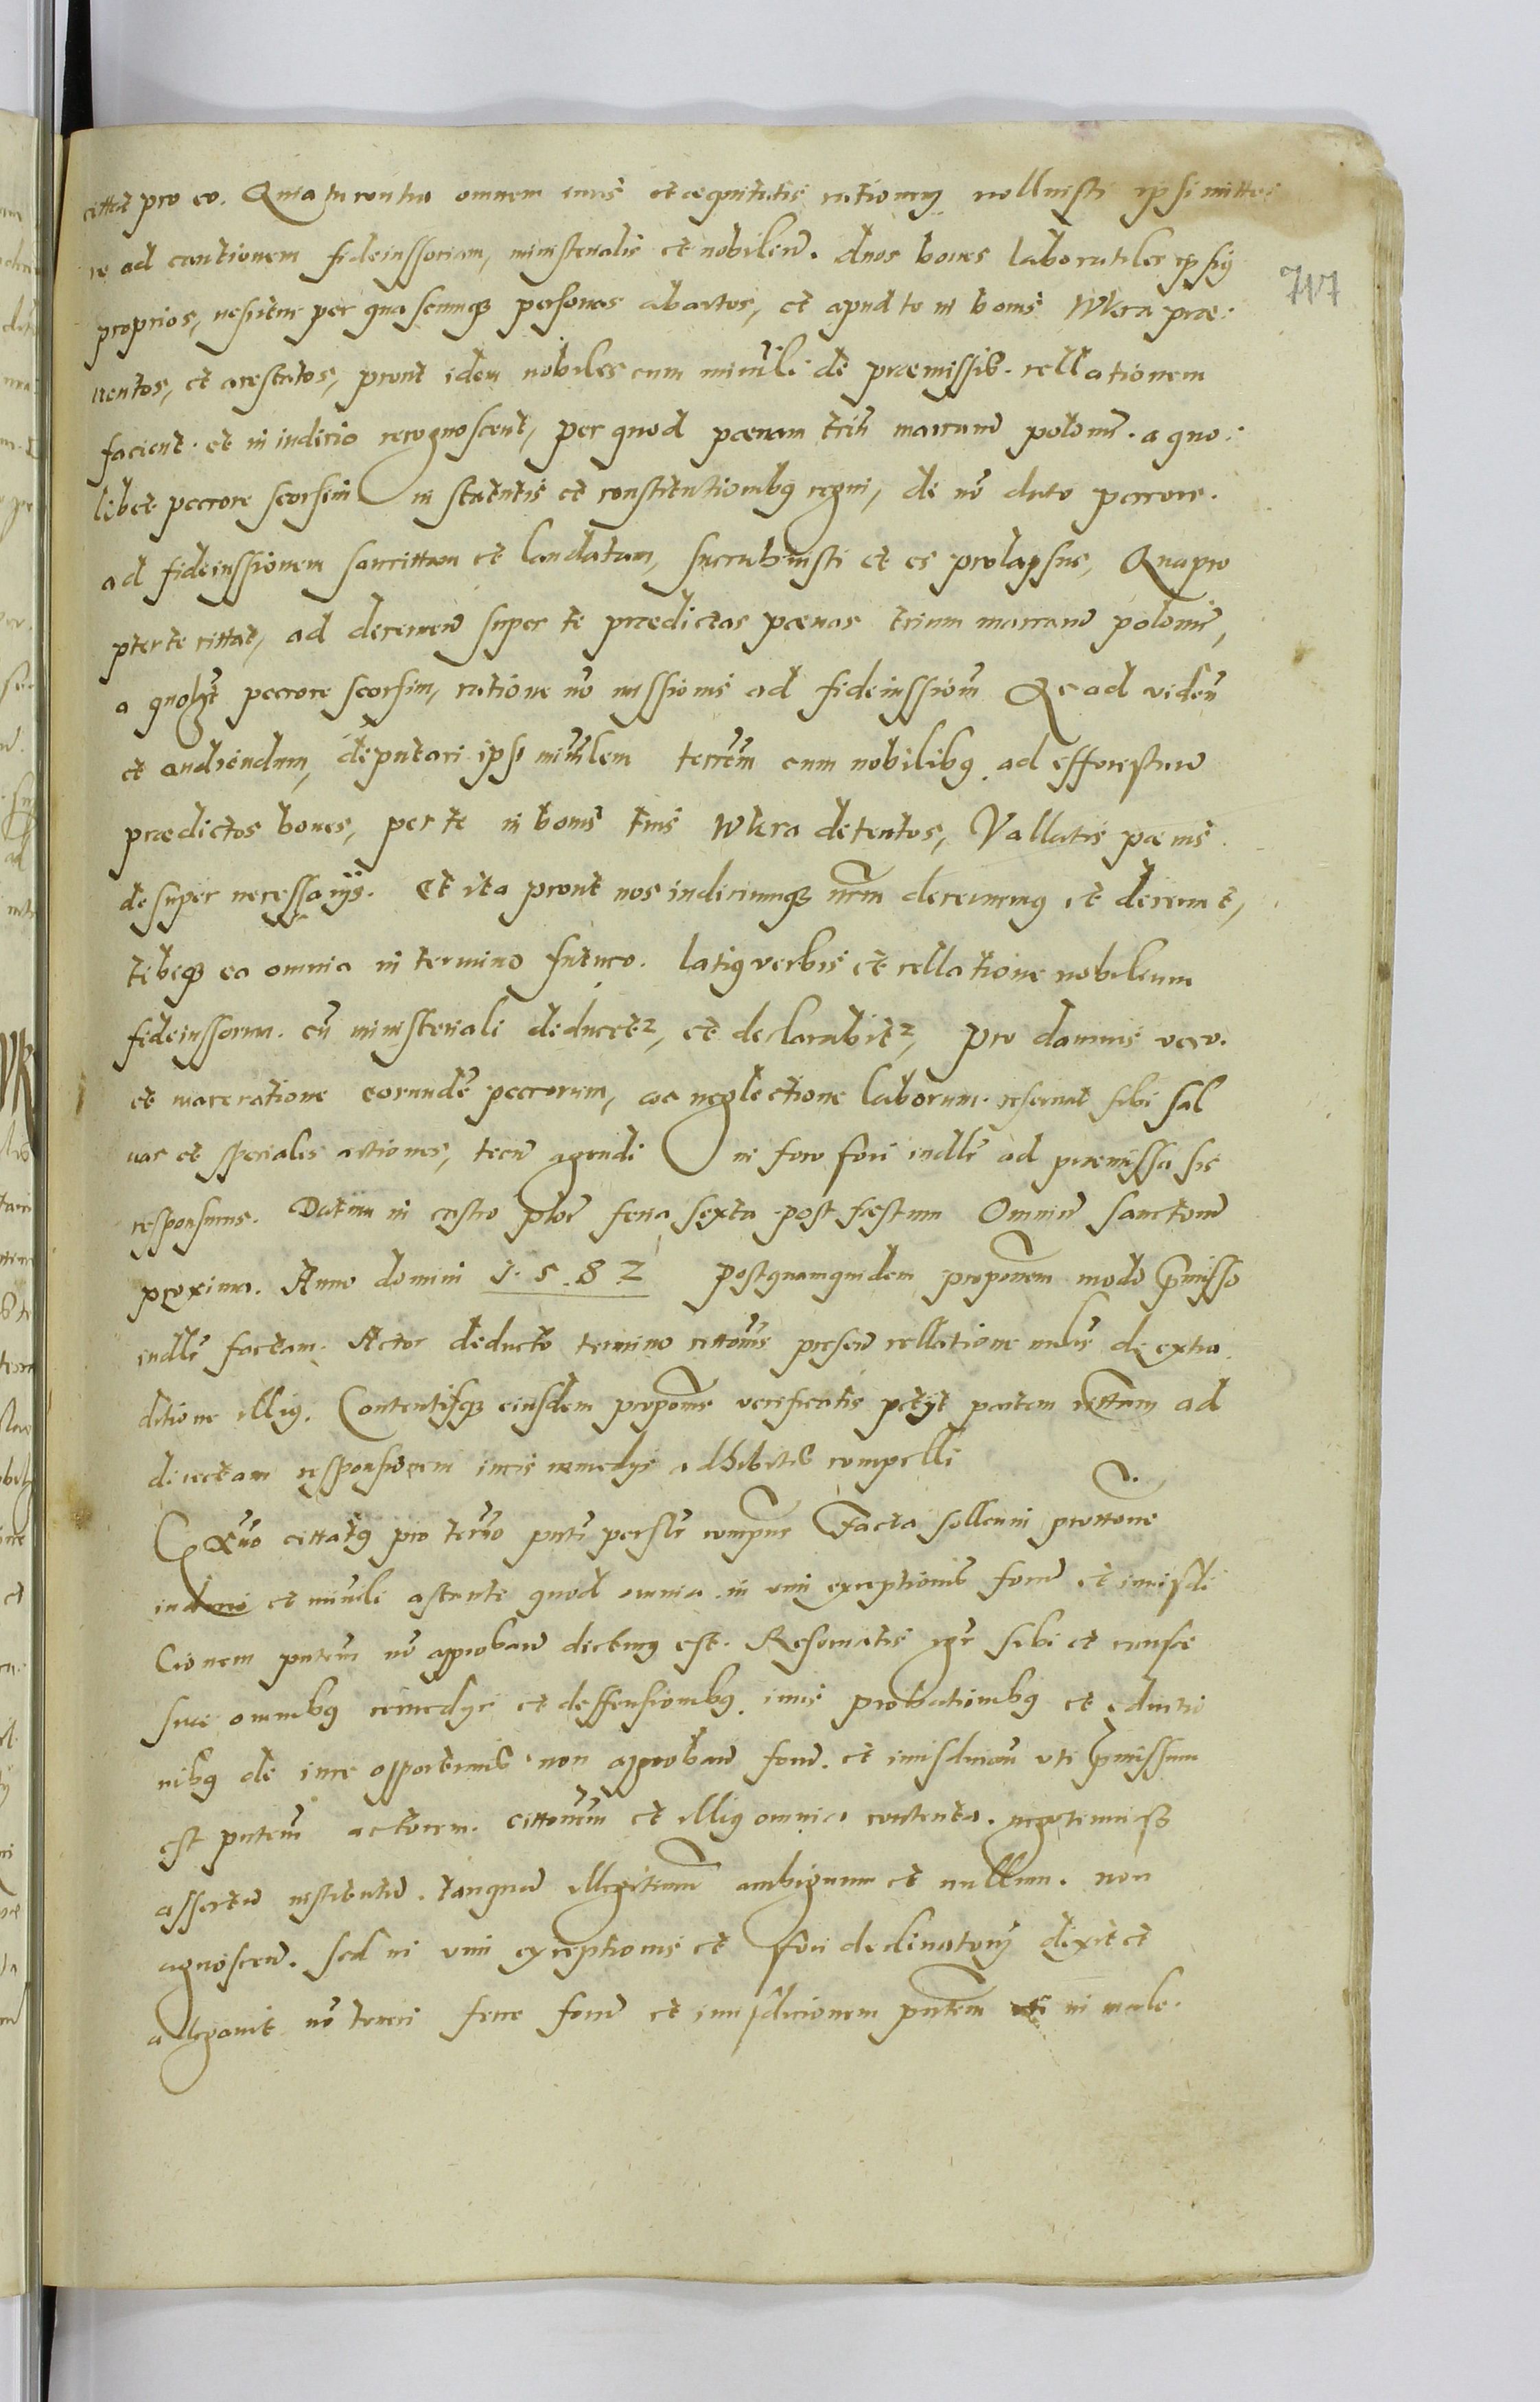 cittat pro eo. Quia tu contra omnem iuris et aequitatis rationem nolluisti ipsi mitte:
re ad cautionem fideiussoriam, ministerialis et nobilem. duos boues laboratiles ipsius
717
proprios, nescitur per quascunque personas abactos, et apud te in bonis Wkra prae:
uentos, et arestatos, prout idem nobiles cum minrli de praemissis. rellationem
facient. et in iudicio recognoscent, per quod paenam trium marcarum polonic. a quo:
libet peccore seorsim in statutis et constitutionibus regni, de non dato peccore.
ad fideiussionem sanccittam et laudatam, succubuisti et es prolapsus, Quapro
pter te cittat, ad decernen super te praedictas paenas trium marcarum polonic,
a quolibet peccore seorsim, ratione non missionis ad fideiussionem Et ad viden
et audiendum, deputari ipsi minrlem terrem cum nobilibus. ad efforestan
praedictos boues, per te in bonis tuis Wkra detentos, Vallatis paenis.
desuper necessariis. Et ita prout nos iudiciumque nrm decernemus et decernet,
tibique ea omnia in termino futuro. latius verbis et rellatione nobilium
fideiussorum. cum ministeriali deducetur, et declarabitur, Pro damnis vero.
et maceratione eorunde peccorum, ac neglectione laborum. reseruat sibi sal
uas et speciales actiones, tecum agendi in foro fori iudlr ad praemissa sis
responsurus. Datum in castro ploc feria sexta post festum Omnium Sanctorum
proximo. Anno domini 1.5.8.2 Postquamquidem proponem modo praemisso
iudlr factam. Actor deducto termino cittonis presen rellatione mlis de extra
ditione illius. Contentisque eiusdem proponis verificatis petyt partem cittam ad
directam responsionem iuris remedys adhibitis compelli
Ex quo cittatus pro termo pnti perslr compns Facta sollenni prottone
iudrio et minrli astante quod omnia in vim exceptionis forum et iurisdi
cionem pntem non approban dicturus est. Reseruatis igr sibi et causae
suae omnibus remedys et deffensionibus. iuris probationibus et eductio
nibus de iure opportunis non approban forum. et iurisdicioni vti praemissum
est pntem actorem. cittonem et illius omnia contenta. 
assertum institutum. tanquam illegitimum ambiguum et nullum. non
agnoscen. sed in vim exceptionis et fori declinatory dixit et
allegauit non teneri forum et iurisdicionem pntem in male.